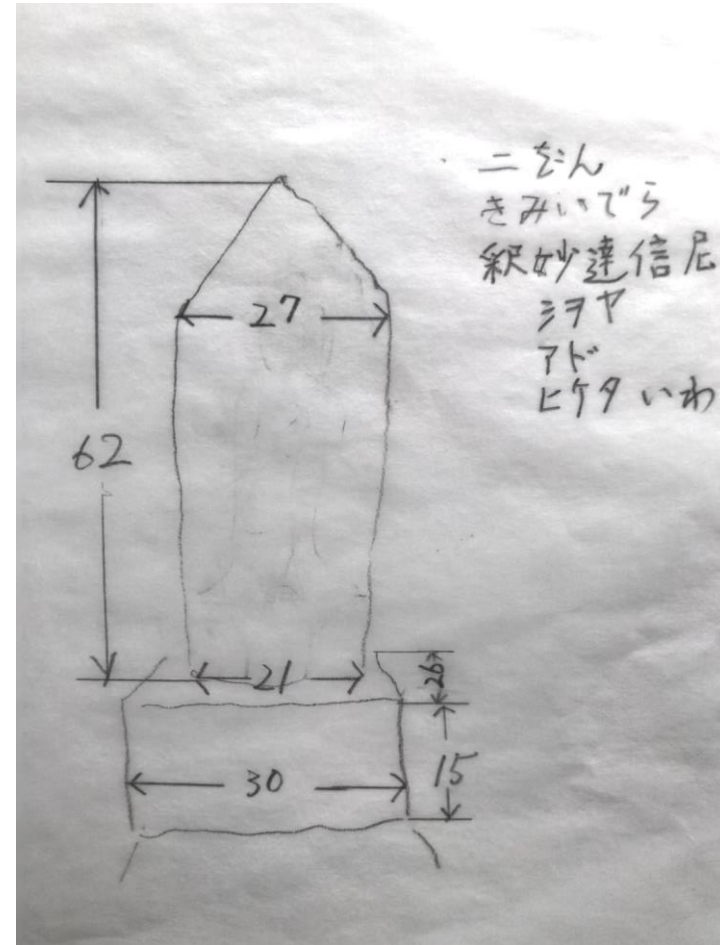 二ばん
きみいでら
釈妙達信尼
シヲヤ
アド
ヒケタいわ
27
62
21
26
30
15